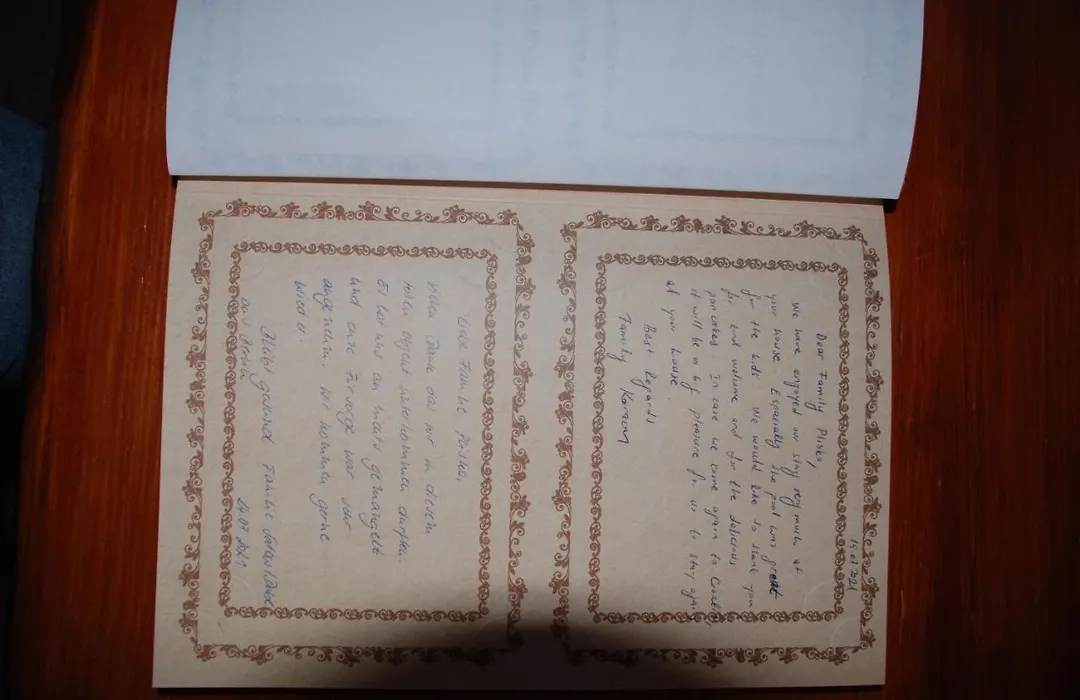 15.07.2021
Dear Family Pliska,
we have enjoyed our stay very much at
your house. Especially the pool was great
for the kids. We would like to thank you
for and welcome and for the delicious
pancakes. In case we come again to
it will be a big pleasure for us to stay again
at your house.
Best Regards
Family
Liebe Familie Pliska,
vielen Danke das wir in diesem
tollen Objekt unterkommen durften.
Es hat uns an nichts gemangelt
und eure Fürsorge war sehr
angenehm. Wir kommen gerne
wieder.
Bleibt Gesund Familie
aus Berlin 24.07.2021